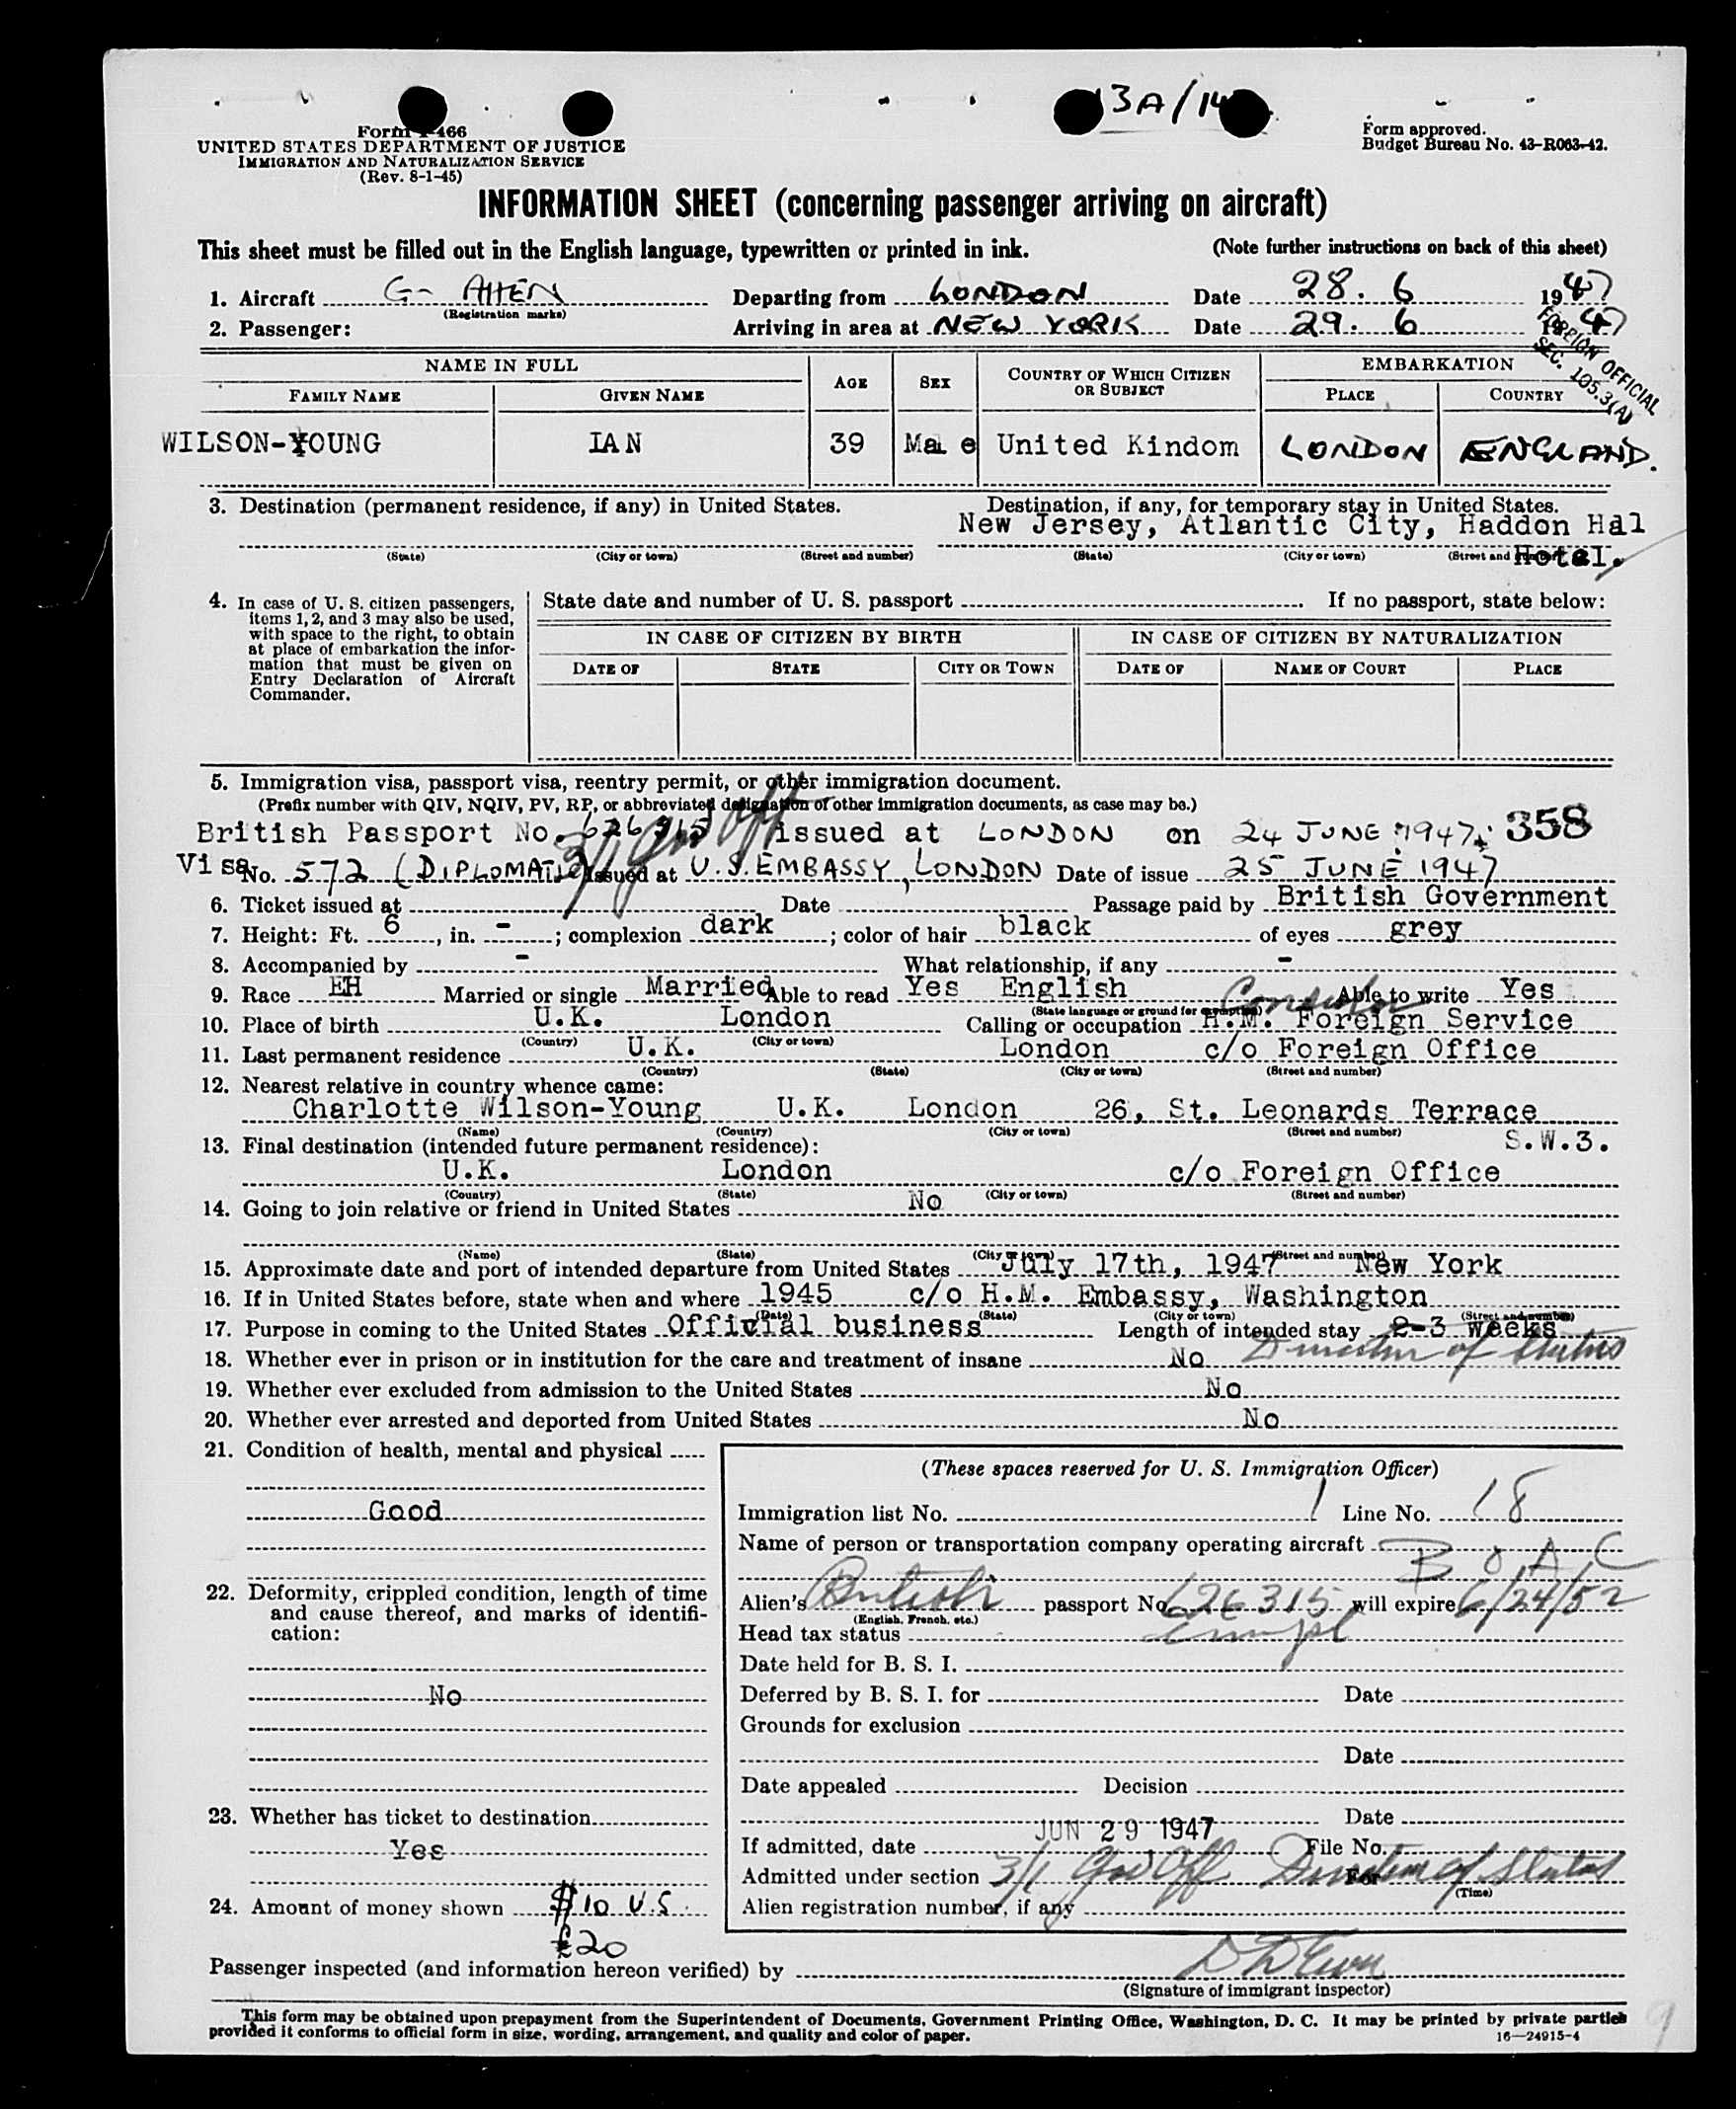 13A/14
Form I-466
UNITED STATES DEPARTMENT OF JUSTICE
IMMIGRATION AND NATURALIZATION SERVICE
(Rev. 8-1-45)
Form approved.
Budget Bureau No. 43-R063-42.
INFORMATION SHEET (concerning passenger arriving on aircraft)
This sheet must be filled out in the English language, typewritten or printed in ink. (Note further instructions on back of this sheet)
1. Aircraft G- AHEN Departing from LONDON Date 28. 6 1947
(Registration marks)
2. Passenger: Arriving in area at NEW YORK Date 29. 6 1947
FOREIGN OFFICIAL
SEC. 105.3(A)
NAME IN FULL AGE SEX COUNTRY OF WHICH CITIZEN OR SUBJECT EMBARKATION
FAMILY NAME GIVEN NAME PLACE COUNTRY
WILSON-YOUNG IAN 39 Ma e United Kindom LONDON ENGLAND.
3. Destination (permanent residence, if any) in United States. Destination, if any, for temporary stay in United States.
New Jersey, Atlantic City, Haddon Hal
Hotel.
(State) (City or town) (Street and number) (State) (City or town) (Street and number)
4. In case of U. S. citizen passengers, items 1, 2, and 3 may also be used, with space to the right, to obtain at place of embarkation the information that must be given on Entry Declaration of Aircraft Commander.
State date and number of U. S. passport . If no passport, state below:
IN CASE OF CITIZEN BY BIRTH IN CASE OF CITIZEN BY NATURALIZATION
DATE OF STATE CITY OR TOWN DATE OF NAME OF COURT PLACE
5. Immigration visa, passport visa, reentry permit, or other immigration document.
(Prefix number with QIV, NQIV, PV, RP, or abbreviated designation of other immigration documents, as case may be.)
British Passport No. 626315 issued at LONDON on 24 JUNE 1947. 358
3/1 Gov Off
Visa No. 572 (DIPLOMATIC) Issued at U.S. EMBASSY, LONDON Date of issue 25 JUNE 1947
6. Ticket issued at Date Passage paid by British Government
7. Height: Ft. 6, in. -; complexion dark; color of hair black of eyes grey
8. Accompanied by - What relationship, if any -
9. Race EH Married or single Married Able to read Yes English Able to write Yes
(State language or ground for exemption)
Consular
10. Place of birth U.K. London Calling or occupation H.M. Foreign Service
(Country) (City or town)
11. Last permanent residence U.K. London c/o Foreign Office
(Country) (State) (City or town) (Street and number)
12. Nearest relative in country whence came:
Charlotte Wilson-Young U.K. London 26, St. Leonards Terrace
(Name) (Country) (City or town) (Street and number) S.W.3.
13. Final destination (intended future permanent residence):
U.K. London c/o Foreign Office
(Country) (State) (City or town) (Street and number)
14. Going to join relative or friend in United States No
(Name) (State) (City or town) (Street and number)
15. Approximate date and port of intended departure from United States July 17th, 1947 New York
16. If in United States before, state when and where 1945 c/o H.M. Embassy, Washington
(Date) (State) (City or town) (Street and number)
17. Purpose in coming to the United States Official business Length of intended stay 2-3 weeks
Duration of Status
18. Whether ever in prison or in institution for the care and treatment of insane No
19. Whether ever excluded from admission to the United States No
20. Whether ever arrested and deported from United States No
21. Condition of health, mental and physical
Good
22. Deformity, crippled condition, length of time and cause thereof, and marks of identification:
No
23. Whether has ticket to destination
Yes
24. Amount of money shown $10 U.S.
£20
(These spaces reserved for U. S. Immigration Officer)
Immigration list No. 1 Line No. 18
Name of person or transportation company operating aircraft B O A C
Alien's British passport No. 626315 will expire 6/24/52
(English, French, etc.)
Head tax status Exempt
Date held for B. S. I.
Deferred by B. S. I. for Date
Grounds for exclusion
Date
Date appealed Decision
Date
If admitted, date JUN 29 1947 File No.
Admitted under section 3/1 Gov Off For Duration of Status
(Time)
Alien registration number, if any
Passenger inspected (and information hereon verified) by
(Signature of immigrant inspector)
This form may be obtained upon prepayment from the Superintendent of Documents, Government Printing Office, Washington, D. C. It may be printed by private parties
provided it conforms to official form in size, wording, arrangement, and quality and color of paper. 16—24915-4
9